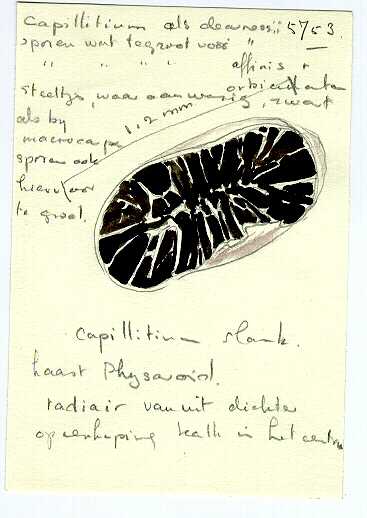 Capillitium als dearnessii 5753.
sporen wat te groot voor "
" " " " affinis +
steeltjes, waar aanwezig, zwart
als by
macrocarpa
sporen ook
hiervoor
te groot.
1,2 mm
Capillitium slank.
haast Physaroid.
radiair vanuit dichter
opeenhoping kalk in het centrum